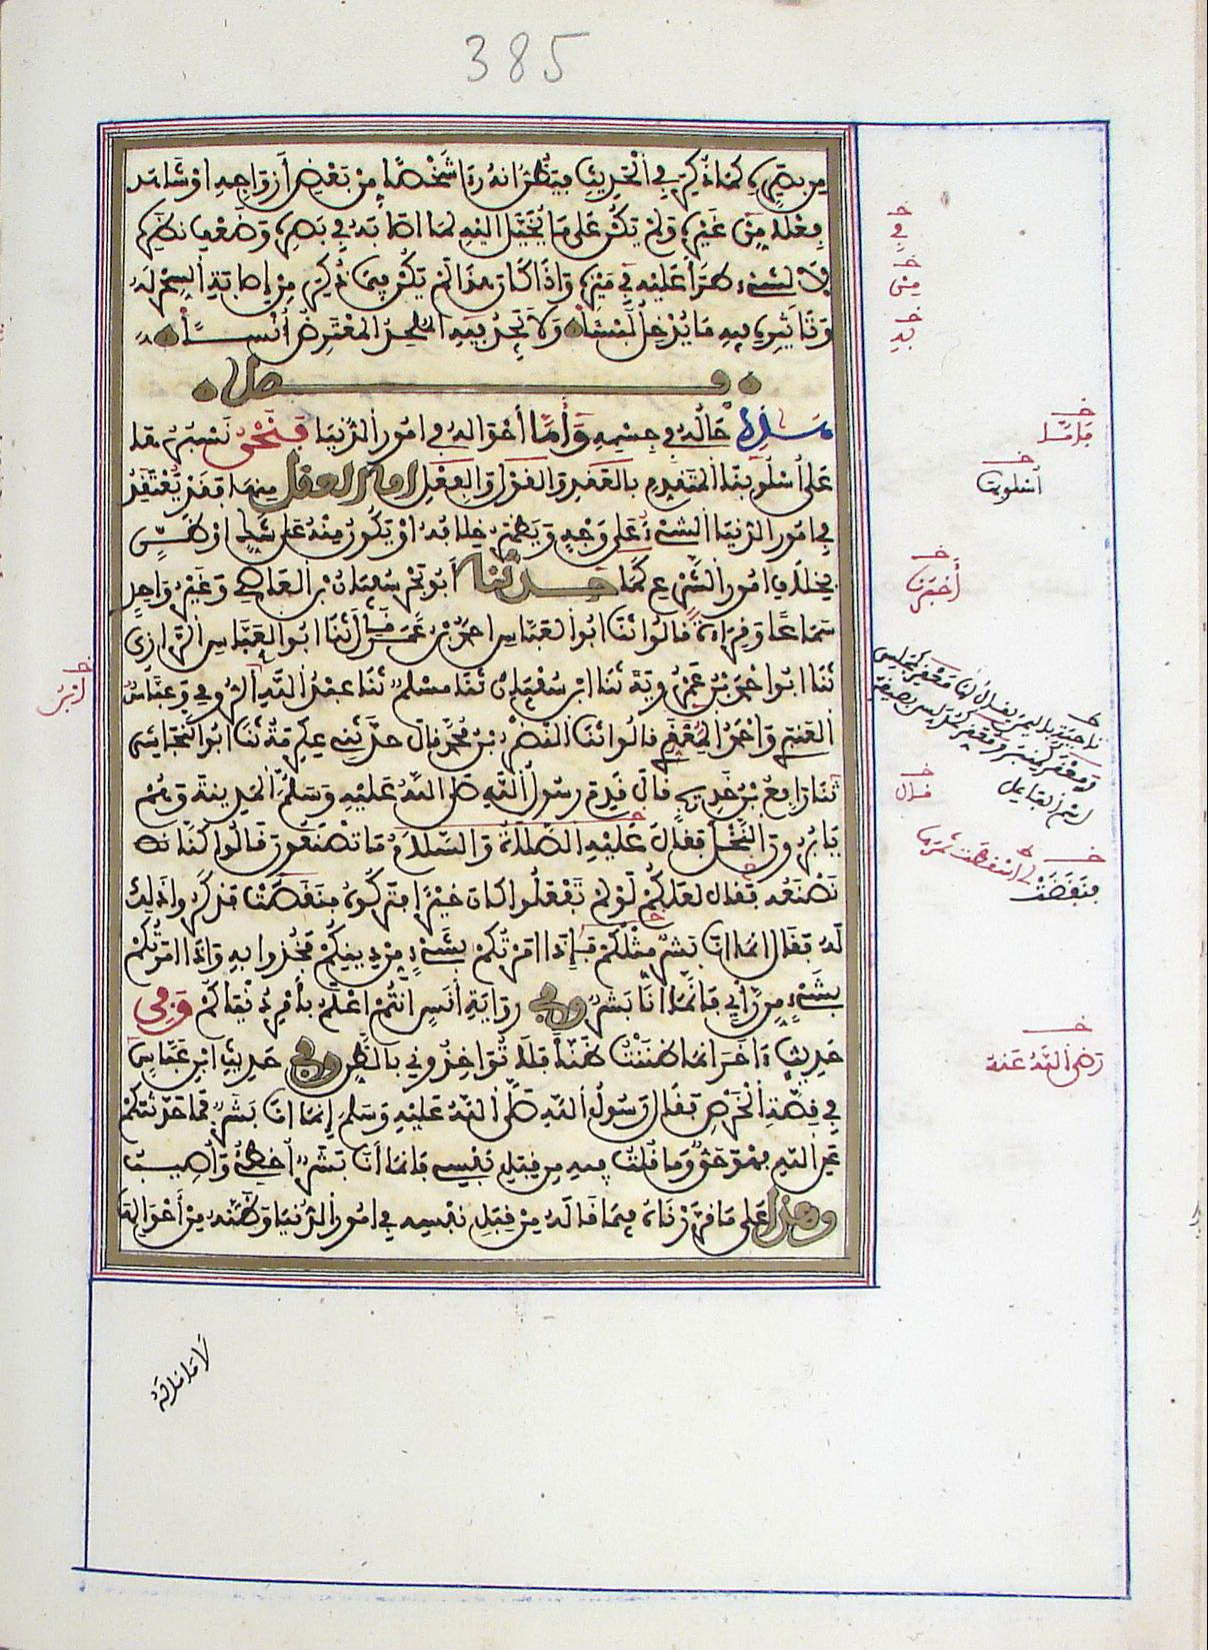 385
من بصره كما ذكر في الحديث فيظن انه رءا شخصا من بعض أزواجه او شاهد
فعلا من غيره ولم يكن على ما يخيل اليه لما اصابه في بصره وضعف نظره
لا لشيء طرأ عليه في ميزه واذا كان هذا لم يكن فيما ذكر من إصابة السحر له
وتاثيره فيه ما يدخل لبسا ولا يجد به الملحد المعترض أنسا
فصل
هذا حاله في جسمه وأما أحواله في امور الدنيا فنحن نسبرها
على أسلوبنا المتقدم بالعقد والقول والفعل اما العقد منها فقد يعتقد
في امور الدنيا الشيء على وجه ويظهر خلافه او يكون منه على شك او ظن
بخلاف امور الشرع كما حدثنا أبو بحر سفيان بن العاصي وغير واحد
سماعا وقراءة قالوا ثنا ابو العباس احمد بن عمر قال ثنا ابو العباس الرازي
ثنا ابو احمد بن عمرويه ثنا ابن سفيان ثنا مسلم ثنا عبد الله الرومي وعباس
العنبري واحمد المعقري قالوا ثنا النضر بن محمد قال حدثني عكرمة ثنا ابو النجاشي
ثنا رافع بن خديج قال قدم رسول الله صلى الله عليه وسلم المدينة وهم
يابرون النخل فقال عليه الصلاة والسلام ما تصنعون قالوا كنا
نصنعه فقال لعلكم لو لم تفعلوا كان خيرا فتركوه فنقصت فذكروا ذلك
له فقال انما انا بشر مثلكم فإذا امرتكم بشيء من دينكم فخذوا به واذا امرتكم
بشيء من رأيي فانما انا بشر وفي رواية أنس انتم اعلم بأمر دنياكم وفي
حديث ءاخر انما ظننت ظنا فلا تؤاخذوني بالظن وفي حديث ابن عباس
في قصة الخرص فقال رسول الله صلى الله عليه وسلم إنما انا بشر فما حدثتكم
عن الله فهو حق وما قلت فيه من قبل نفسي فانما أنا بشر أخطئ وأصيب
وهذا على ما قررناه فيما قاله من قبل نفسه في امور الدنيا وظنه من أحوالها
في
من
به
أسلوبنا
أخبرنا
ابن
قال
فنفضت
رضي الله عنه
لا ما قاله